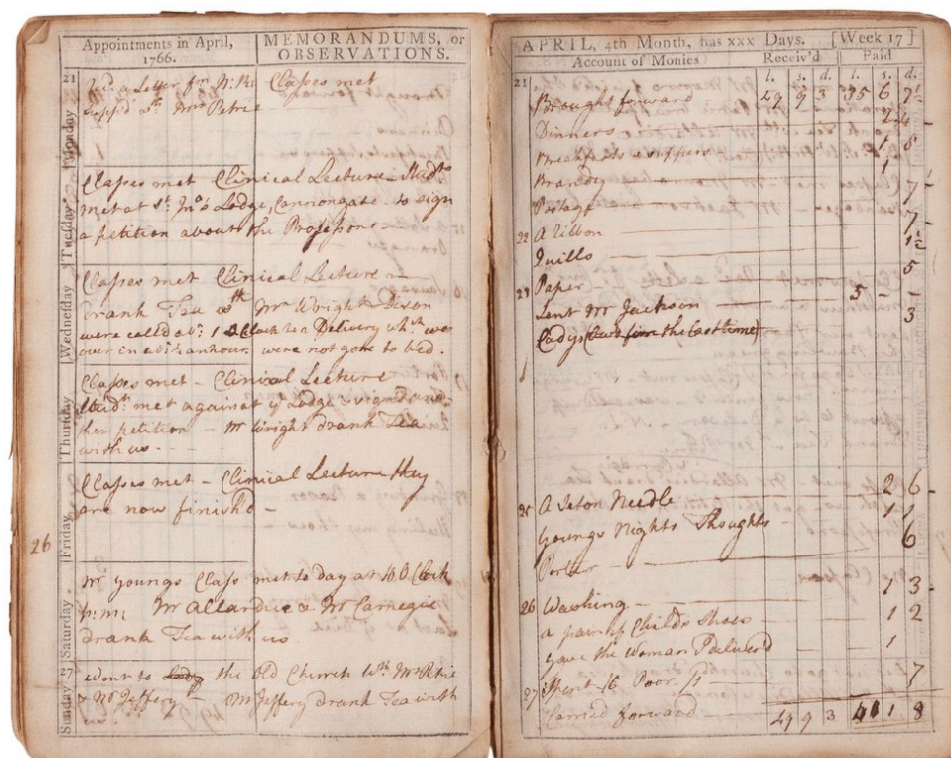 Appointments in April,
1766.
MEMORANDUMS, or
OBSERVATIONS.
21
Monday
Rec'd a Letter fm
Classes met
Supp'd wth Mrs Petrie
Tuesday
Classes met Clinical Lecture Studts
met at St Jno's Lodge, Cannongate to sign
a petition about the Professors
Wednesday
Classes met Clinical Lecture
drank Tea wth Mr Wright
were called abt 1 O Clock to a Delivery wh was
over in abt ½ an hour. were not gone to bed.
Thursday
Classes met – Clinical Lecture
Studts met again at ye Lodge & signed ano-
ther petition – Mr Wright drank Tea
with us
Friday
26
Classes met – Clinical Lecture they
are now finishd –
Saturday
Mr Youngs Class met to day at 10 O Clock
Mr Allardice & Mr Carnegie
drank Tea with us
27
Sunday
went to the Old Church Wth Mr Petrie
& Mr Jeffery – Mr Jeffery drank Tea with
us.
APRIL, 4th Month, has xxx Days. [Week 17]
Account of Monies Receiv'd Paid
l. s. d. l. s. d.
21
Brought forward 29 9 3 75 6 7½
Dinners 2 4
Breakfasts & suppers 1 8
Brandy 1
Postage 7
22 A ribbon 7
Quills 1½
23 Paper 5
Lent Mr Jackson 5 - -
Ladys (the last time) 3
25 A Seton Needle 2 6
Youngs Nights Thoughts 1
Porter 6
26 Washing 1 3
a pair of Childs Shoes 1 2
gave the Woman Deliver'd 1
27 Spent /6 Poor /1 7
Carried forward 29 9 3 1 8